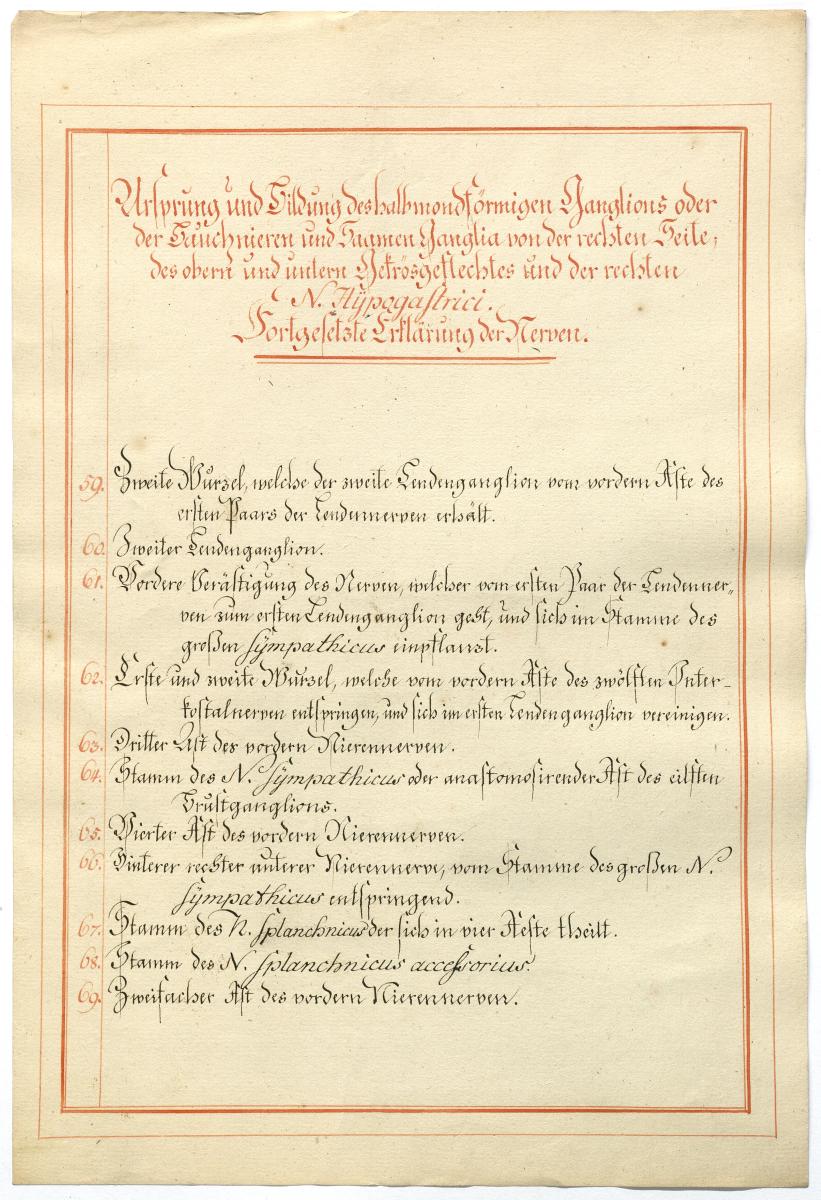 Ursprung und Bildung des halbmondförmigen Ganglions oder
der Bauchnieren und Magmen Ganglia von der rechten Seite,
des obern und untern Gekrösgeflechtes und der rechten
N. Hÿpogastrici.
Fortgesetzte Erklärung der Nerven.
59. Zweite Wurzel, welche der zweite Lendenganglion vom vordern Äste des
ersten Paars der Lendennerven erhält.
60. Zweiter Lendenganglion.
61. Vordere Verästigung des Nerven, welcher vom ersten Paar der Lendenner„
ven zum ersten Lendenganglion geht, und sich im Stamme des
großen Sÿmpathicus einpflanzt.
62. Erste und zweite Wurzel, welche vom vordern Äste des zwölften Inter-
kostalnerven entspringen, und sich im ersten Lendenganglion vereinigen.
63. Dritter Ast des vordern Nierennerven.
64. Stamm des N. Sÿmpathicus oder anastomosirender Ast des eilften
Brustganglions.
65. Vierter Ast des vordern Nierennerven.
66. Hinterer rechter unterer Nierennerve, vom Stamme des großen N.
Sÿmpathicus entspringend.
67. Stamm des N. Splanchnicus der sich in vier Aeste theilt.
68. Stamm des N. Splanchnicus accessorius.
69. Zweifacher Ast des vordern Nierennerven.